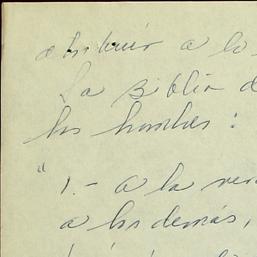 atribuir a lo
La Biblia d
los hombres :
" 1.- a la ver
a los demás,